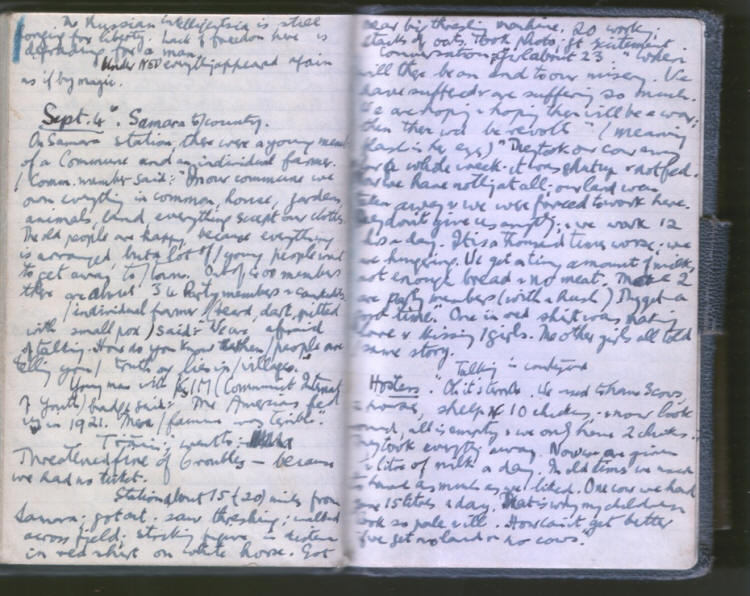 The Russian intelligentsia is still
longing for liberty. Lack of freedom here is
for a man.
Under NEP everything appeared again
as if by magic.
Sept. 4th. Samara to country.
On Samara station, there were a young man
of a Commune and an individual farmer.
Comm. member said: "In our commune we
own everything in common, house, gardens,
animals, land, everything except our clothes.
The old people are happy, because everything
is arranged, but a lot of / young people want
to get away, to / towns. Out of 200 members
there are about 36 Party members & candidates
/ individual farmer (beard, dark, pitted
with small pox) said: "We are afraid
of talking. How do you know whether / people are
telling you / truth or lies in / villages."
Young man with KIM (Communist Internat.
of Youth) badge said: "The Americans fed
us in 1921. There / famine was terrible".
Train; went
Threatened fine of 6 roubles — because
we had no ticket.
Station about 15 (20) miles from
Samara; got out; saw threshing; walked
across field; striking figure in distance
in red shirt on white horse. Got
near big threshing machine. 20 work;
stacks of oats. Took photo; gt excitement.
Conversation: girl about 23. "When
will there be an end to our misery. We
have suffered & are suffering so much.
We are hoping & hoping there will be a war;
then there wd be revolt" (meaning
hand in her eyes) "They took our cow away
for a whole week; it was shut up & not fed.
Now we have nothing at all; our land was
taken away & we were forced to work here.
They don't give us anything; we work 12
hrs a day. It is a thousand times worse; we
are hungering. We get a tiny amount of milk,
not enough bread & no meat. There 2
are party members (with a hush) They get a
good time." One in red shirt was making
love & kissing / girls. The other girls all told
same story.
Talking in courtyard
Hostess. "Oh it's terrible. We used to have 3 cows,
a horse, sheep & 10 chickens, & now look
round, all is empty & we only have 2 chicks.
They took everything away. Now we are given
litre of milk a day. In old times we used
to have as much as we liked. One cow we had
gave 15 litres a day. That's why my children
look so pale & ill. How can it get better
if we get no land & no cows."